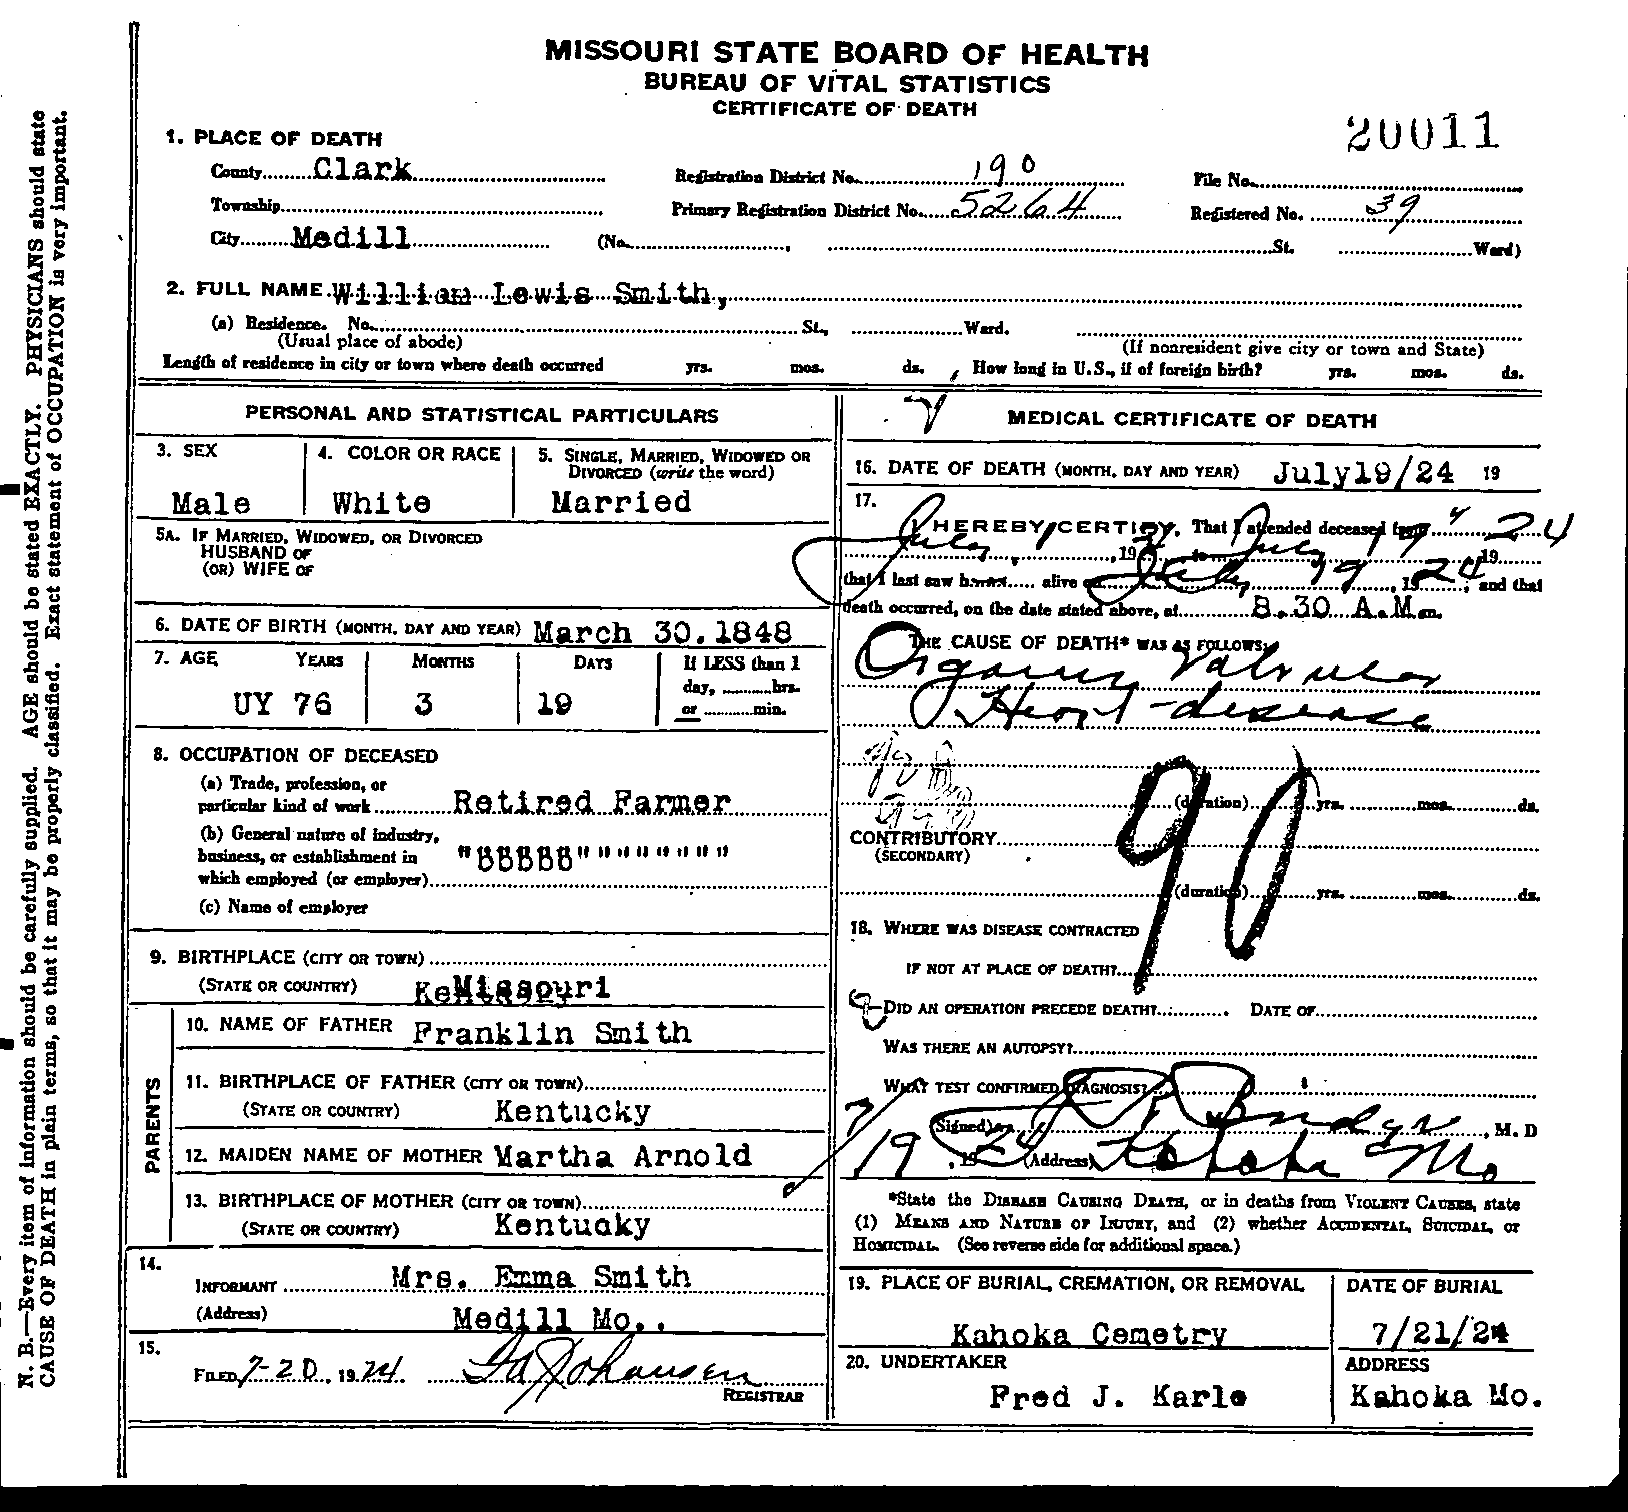 MISSOURI STATE BOARD OF HEALTH
BUREAU OF VITAL STATISTICS
CERTIFICATE OF DEATH
20011
1. PLACE OF DEATH
County Clark Registration District No. 190 File No.
Township Primary Registration District No. 5264 Registered No. 39
City Medill (No. , St. Ward)
2. FULL NAME William Lewis Smith,
(a) Residence. No. St., Ward.
(Usual place of abode) (If nonresident give city or town and State)
Length of residence in city or town where death occurred yrs. mos. ds. How long in U.S., if of foreign birth? yrs. mos. ds.
PERSONAL AND STATISTICAL PARTICULARS
3. SEX 4. COLOR OR RACE 5. SINGLE, MARRIED, WIDOWED OR
DIVORCED (write the word)
Male White Married
5A. IF MARRIED, WIDOWED, OR DIVORCED
HUSBAND OF
(OR) WIFE OF
6. DATE OF BIRTH (MONTH, DAY AND YEAR) March 30.1848
7. AGE YEARS MONTHS DAYS If LESS than 1
day, hrs.
UY 76 3 19 or min.
8. OCCUPATION OF DECEASED
(a) Trade, profession, or
particular kind of work Retired Farmer
(b) General nature of industry,
business, or establishment in
which employed (or employer)
(c) Name of employer
9. BIRTHPLACE (CITY OR TOWN)
(STATE OR COUNTRY) Missouri
PARENTS
10. NAME OF FATHER Franklin Smith
11. BIRTHPLACE OF FATHER (CITY OR TOWN)
(STATE OR COUNTRY) Kentucky
12. MAIDEN NAME OF MOTHER Martha Arnold
13. BIRTHPLACE OF MOTHER (CITY OR TOWN)
(STATE OR COUNTRY) Kentucky
14.
INFORMANT Mrs. Emma Smith
(Address) Medill Mo..
15.
FILED 7-20, 1924 Johansen
REGISTRAR
MEDICAL CERTIFICATE OF DEATH
16. DATE OF DEATH (MONTH, DAY AND YEAR) July19/24 19
17.
I HEREBY CERTIFY, That I attended deceased from
July , 19 to July 19 24 19
that I last saw h alive on July 19, 1924, and that
death occurred, on the date stated above, at 8.30 A.M m.
THE CAUSE OF DEATH* WAS AS FOLLOWS:
Organic Valvular
Heart disease
90
(duration) yrs. mos. ds.
CONTRIBUTORY
(SECONDARY)
(duration) yrs. mos. ds.
18. WHERE WAS DISEASE CONTRACTED
IF NOT AT PLACE OF DEATH?
DID AN OPERATION PRECEDE DEATH? DATE OF
WAS THERE AN AUTOPSY?
WHAT TEST CONFIRMED DIAGNOSIS?
(Signed) Bridges, M. D
7/19, 1924 (Address) Kahoka Mo
*State the DISEASE CAUSING DEATH, or in deaths from VIOLENT CAUSES, state
(1) MEANS AND NATURE OF INJURY, and (2) whether ACCIDENTAL, SUICIDAL, or
HOMICIDAL. (See reverse side for additional space.)
19. PLACE OF BURIAL, CREMATION, OR REMOVAL DATE OF BURIAL
Kahoka Cemetry 7/21/24
20. UNDERTAKER ADDRESS
Fred J. Karle Kahoka Mo.
N. B.—Every item of information should be carefully supplied. AGE should be stated EXACTLY. PHYSICIANS should state
CAUSE OF DEATH in plain terms, so that it may be properly classified. Exact statement of OCCUPATION is very important.